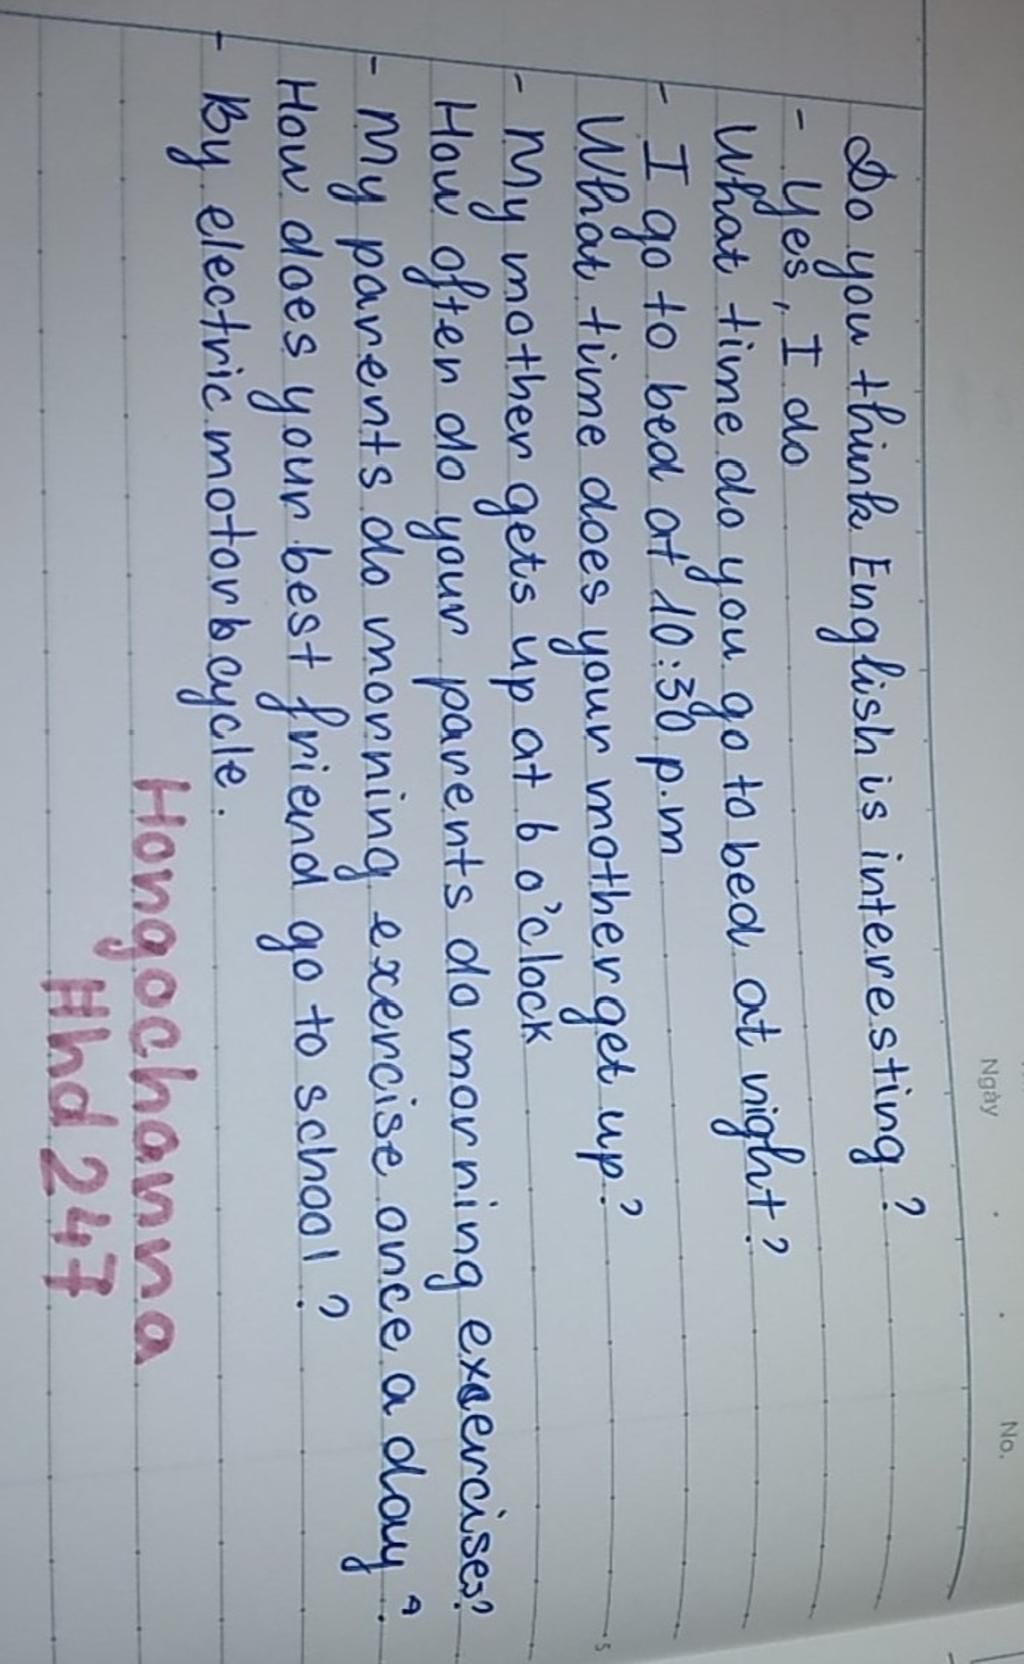 Ngày
No.
Do you think English is interesting?
- Yes, I do
What time do you go to bed at night?
- I go to bed at 10:30 p.m
What time does your mother get up?
- My mother gets up at 6 o'clock
How often do your parents do morning exercises?
- My parents do morning exercise once a day.
How does your best friend go to school?
- By electric motorbcycle.
Hongochanna
#hd247
5